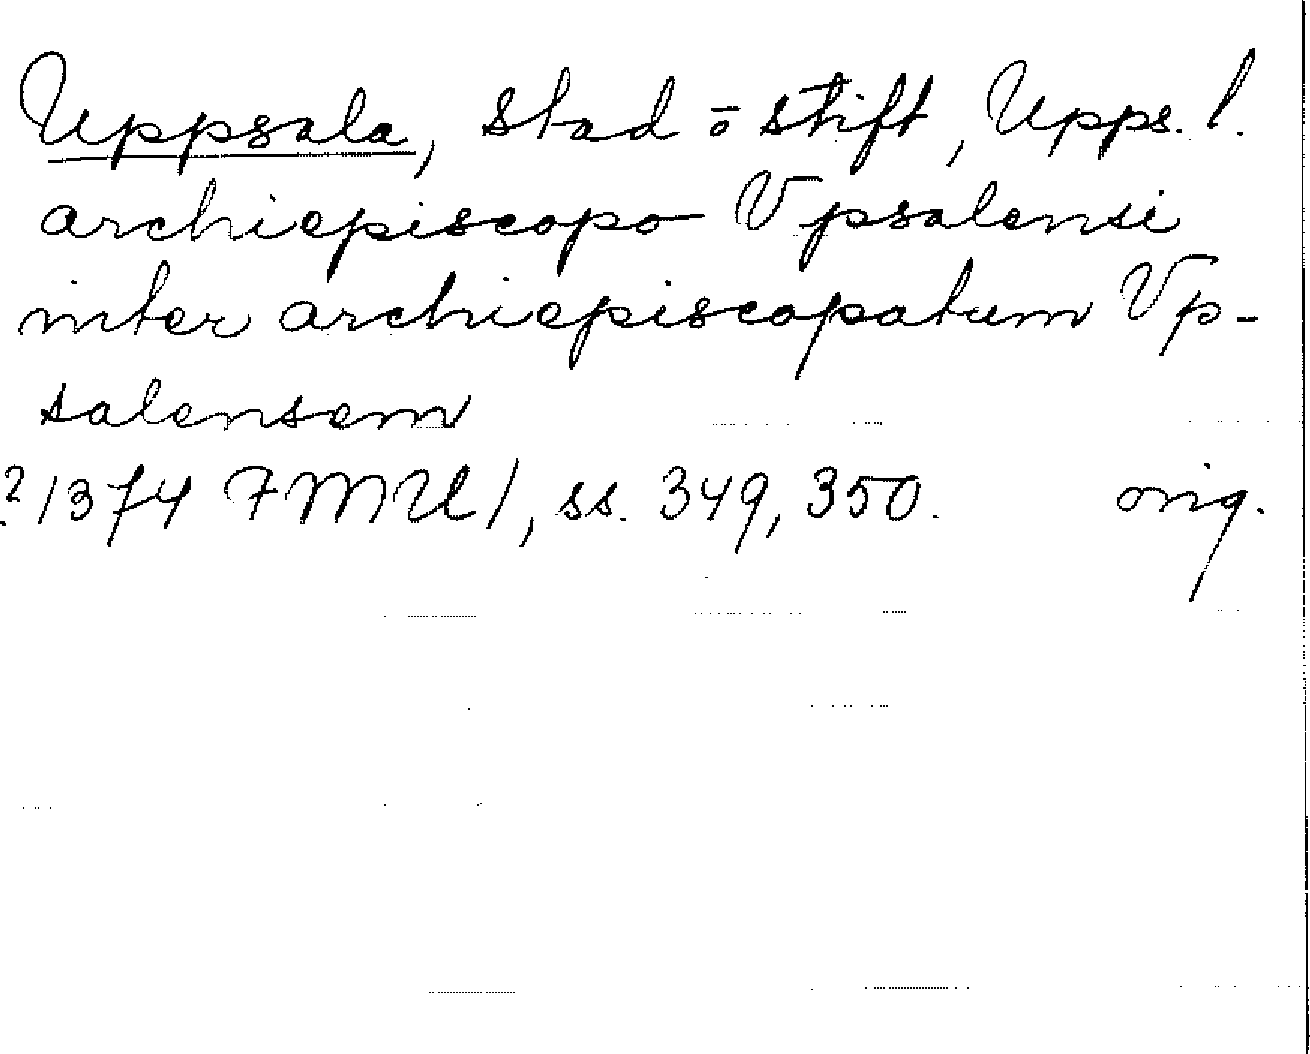 Uppsala, stad ō stift, Upps. l.
archiepiscopo Vpsalensi
inter archiepiscopatum Vp-
salensem
? 1374 FMU 1, ss. 349, 350. orig.